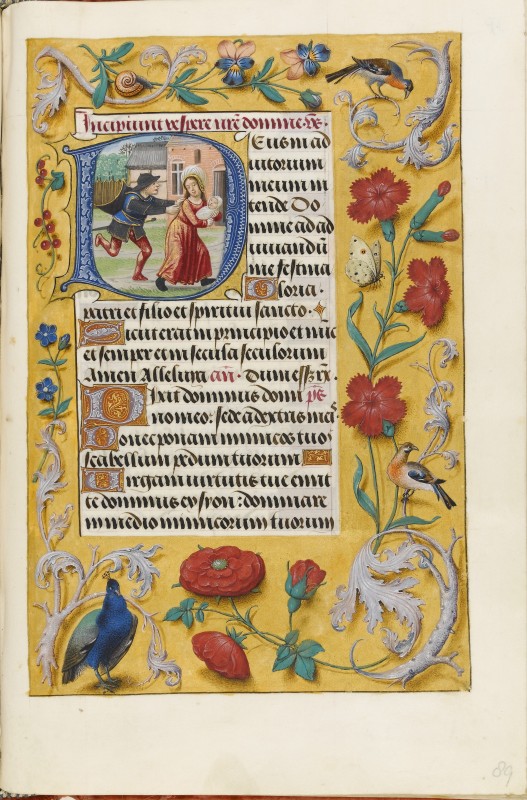 Incipiunt vespere nr̄e domine. v̄s
Deus in ad
iutorium
meum in
tende Do
mine ad ad
iuuandū
me festina
Gloria
patri et filio et spiritui sancto.
Sicut erat in principio et nūc
et semper et in secula seculorum
Amen Alleluya. añ. Dum ess; rx.
Dixit dominus dom̄ p̄s
no meo: sede a dextris meis
Donec ponam inimicos tuos
scabellum pedum tuorum
Virgam uirtutis tue emit
te dominus ex syon: dominare
in medio inimicorum tuorum
89